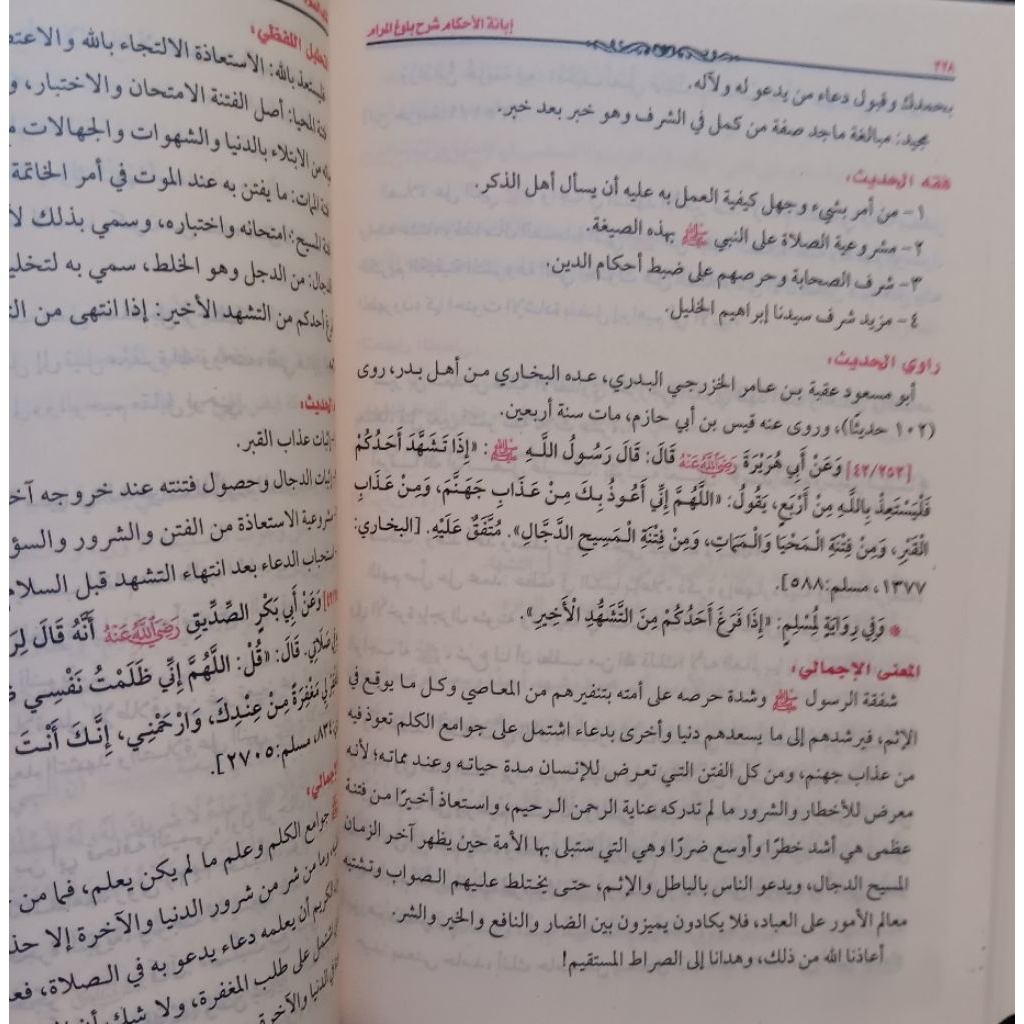 إبانة الأحكام شرح بلوغ المرام
٢٢٨
بحمدك وقبول دعاء من يدعو له ولآله.
مجيد: مبالغة ماجد صفة من كمل في الشرف وهو خبر بعد خبر.
فقه الحديث:
١- من أمر بشيء وجهل كيفية العمل به عليه أن يسأل أهل الذكر.
٢- مشروعية الصلاة على النبي ﷺ بهذه الصيغة.
٣- شرف الصحابة وحرصهم على ضبط أحكام الدين.
٤- مزيد شرف سيدنا إبراهيم الخليل.
راوي الحديث:
أبو مسعود عقبة بن عامر الخزرجي البدري، عده البخاري من أهل بدر، روى
(١٠٢ حديثًا)، وروى عنه قيس بن أبي حازم، مات سنة أربعين.
[٤٢/٢٥٢] وَعَنْ أَبِي هُرَيْرَةَ رَضِيَ اللَّهُ عَنْهُ قَالَ: قَالَ رَسُولُ اللَّهِ ﷺ: «إِذَا تَشَهَّدَ أَحَدُكُمْ
فَلْيَسْتَعِذْ بِاللَّهِ مِنْ أَرْبَعٍ، يَقُولُ: «اللَّهُمَّ إِنِّي أَعُوذُ بِكَ مِنْ عَذَابِ جَهَنَّمَ، وَمِنْ عَذَابِ
الْقَبْرِ، وَمِنْ فِتْنَةِ الْمَحْيَا وَالْمَمَاتِ، وَمِنْ فِتْنَةِ الْمَسِيحِ الدَّجَّالِ». مُتَّفَقٌ عَلَيْهِ. [البخاري:
١٣٧٧، مسلم:٥٨٨].
* وَفِي رِوَايَةٍ لِمُسْلِمٍ: «إِذَا فَرَغَ أَحَدُكُمْ مِنَ التَّشَهُّدِ الْأَخِيرِ».
المعنى الإجمالي:
شفقة الرسول ﷺ وشدة حرصه على أمته بتنفيرهم من المعاصي وكل ما يوقع في
الإثم، فيرشدهم إلى ما يسعدهم دنيا وأخرى بدعاء اشتمل على جوامع الكلم تعوذ فيه
من عذاب جهنم، ومن كل الفتن التي تعرض للإنسان مدة حياته وعند مماته؛ لأنه
معرض للأخطار والشرور ما لم تدركه عناية الرحمن الرحيم، واستعاذ أخيرًا من فتنة
عظمى هي أشد خطرًا وأوسع ضررًا وهي التي ستبلى بها الأمة حين يظهر آخر الزمان
المسيح الدجال، ويدعو الناس بالباطل والإثم، حتى يختلط عليهم الصواب وتشتبه
معالم الأمور على العباد، فلا يكادون يميزون بين الضار والنافع والخير والشر.
أعاذنا الله من ذلك، وهدانا إلى الصراط المستقيم!
التحليل اللفظي:
فليستعذ بالله: الاستعاذة الالتجاء بالله
فتنة المحيا: أصل الفتنة الامتحان والاختبار،
من الابتلاء بالدنيا والشهوات والجهالات
ما يفتن به عند الموت في أمر الخاتمة
المسيح: امتحانه واختباره، وسمي بذلك
الدجال: من الدجل وهو الخلط، سمي به
أحدكم من التشهد الأخير: إذا انتهى من
الحديث:
إثبات عذاب القبر.
إثبات الدجال وحصول فتنته عند خروجه
مشروعية الاستعاذة من الفتن والشرور
استحباب الدعاء بعد انتهاء التشهد قبل السلام
وَعَنْ أَبِي بَكْرٍ الصِّدِّيقِ رَضِيَ اللَّهُ عَنْهُ أَنَّهُ قَالَ
صَلَاتِي. قَالَ: «قُلْ: اللَّهُمَّ إِنِّي ظَلَمْتُ نَفْسِي
مَغْفِرَةً مِنْ عِنْدِكَ، وَارْحَمْنِي، إِنَّكَ أَنْتَ
٨٣٤، مسلم:٢٧٠٥].
جوامع الكلم وعلم ما لم يكن يعلم، فما من
من شر من شرور الدنيا والآخرة إلا
الكريم أن يعلمه دعاء يدعو به في الصلاة،
على طلب المغفرة، ولا شك أن
الدنيا والآخرة